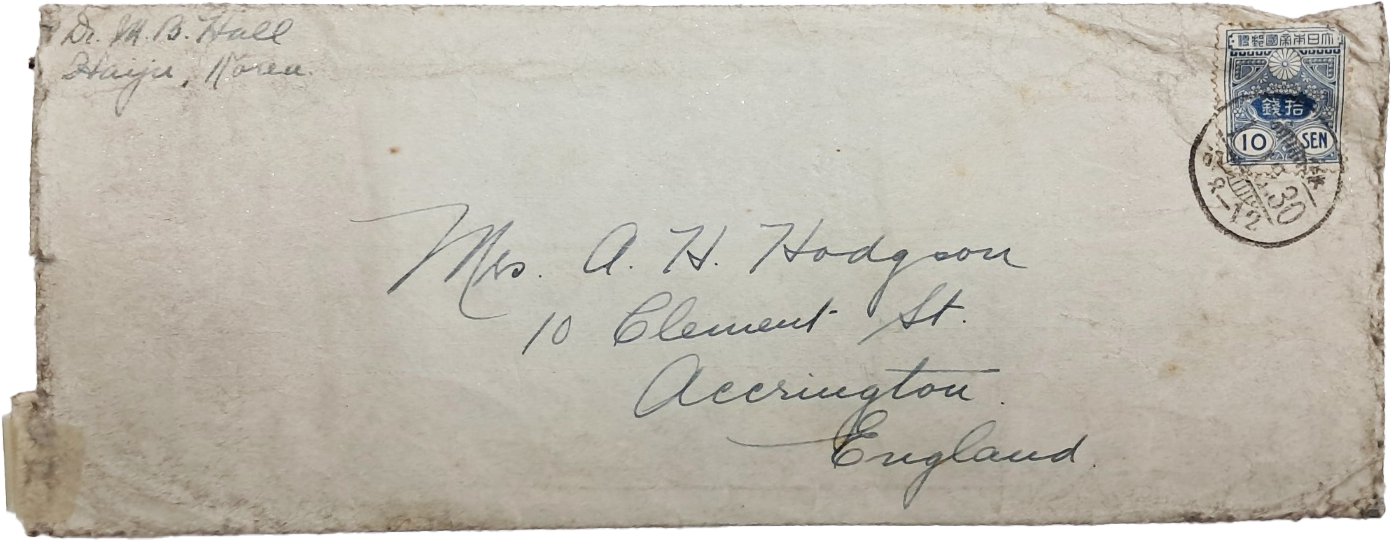 Dr. M. B. Hall
Haiju, Korea.
大日本帝國郵便
拾錢
10 SEN
30
8-12
Mrs. A. H. Hodgson
10 Clement St.
Accrington.
England.